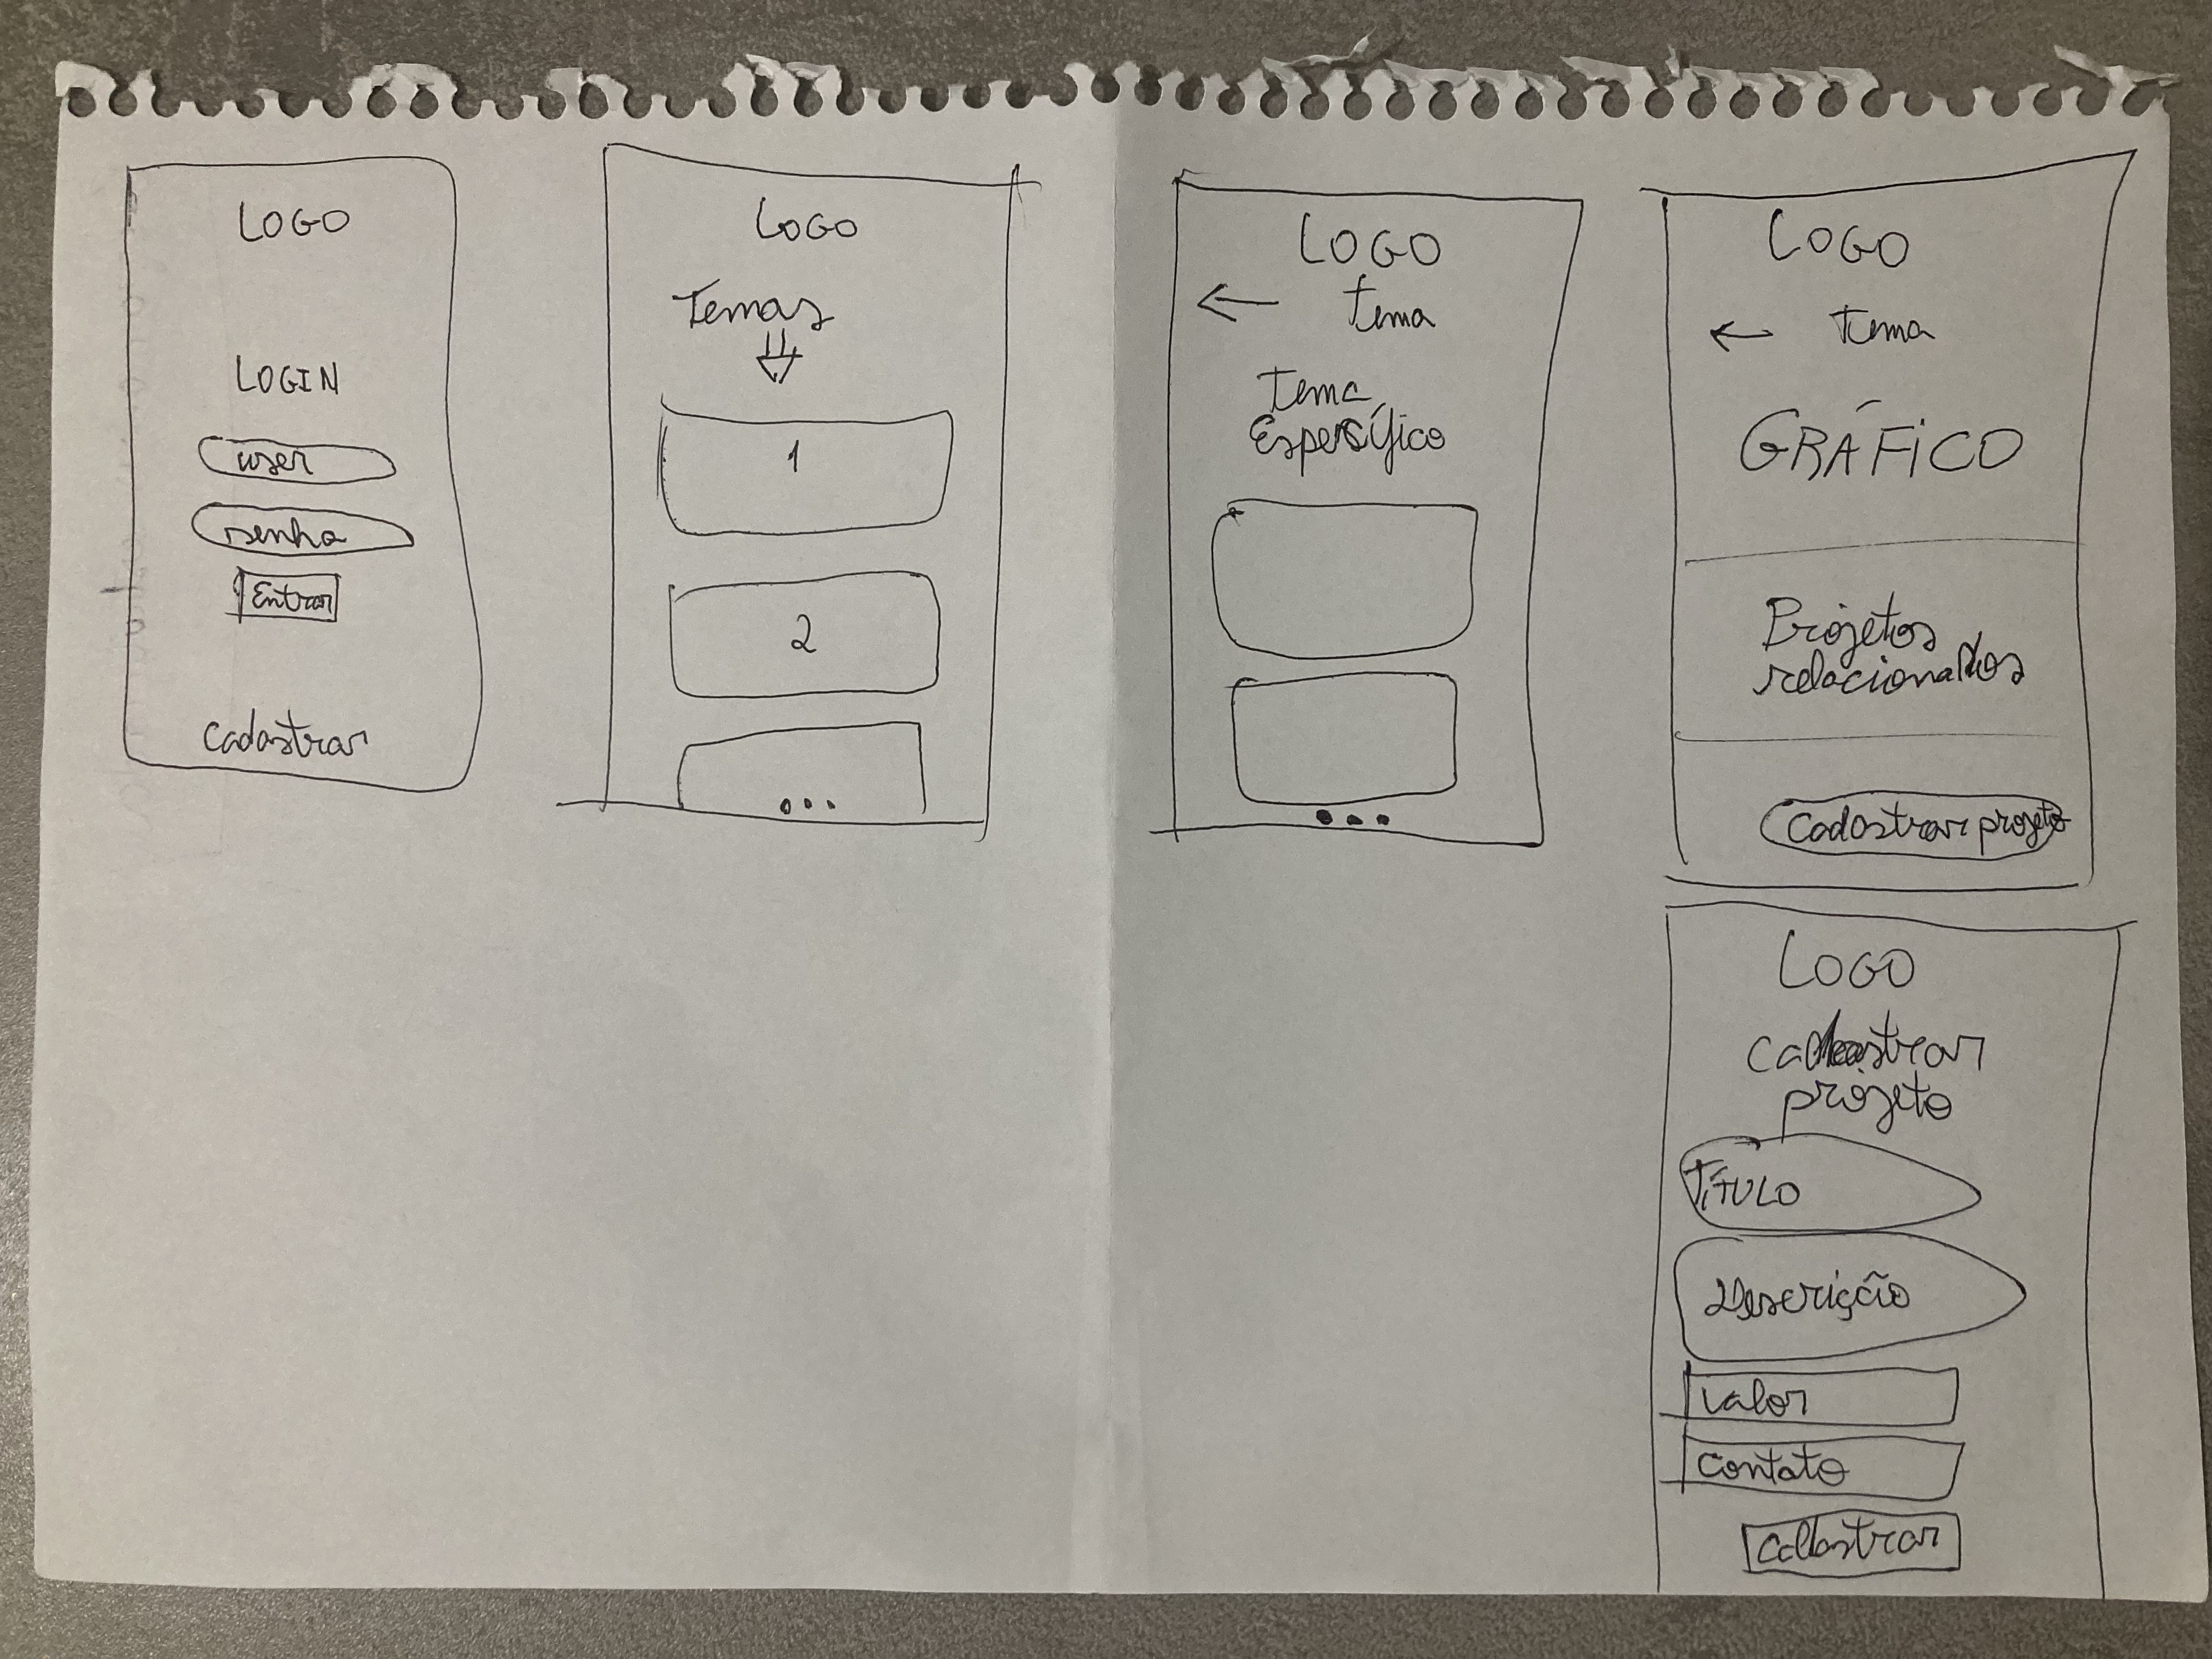 LOGO
LOGIN
user
senha
Entrar
cadastrar
LOGO
Temas
1
2
...
LOGO
← tema
Tema
Espersífico
...
LOGO
← tema
GRÁFICO
Projetos
relacionados
cadastrar projeto
LOGO
cadastrar
projeto
TÍTULO
Descrição
valor
contato
cadastrar